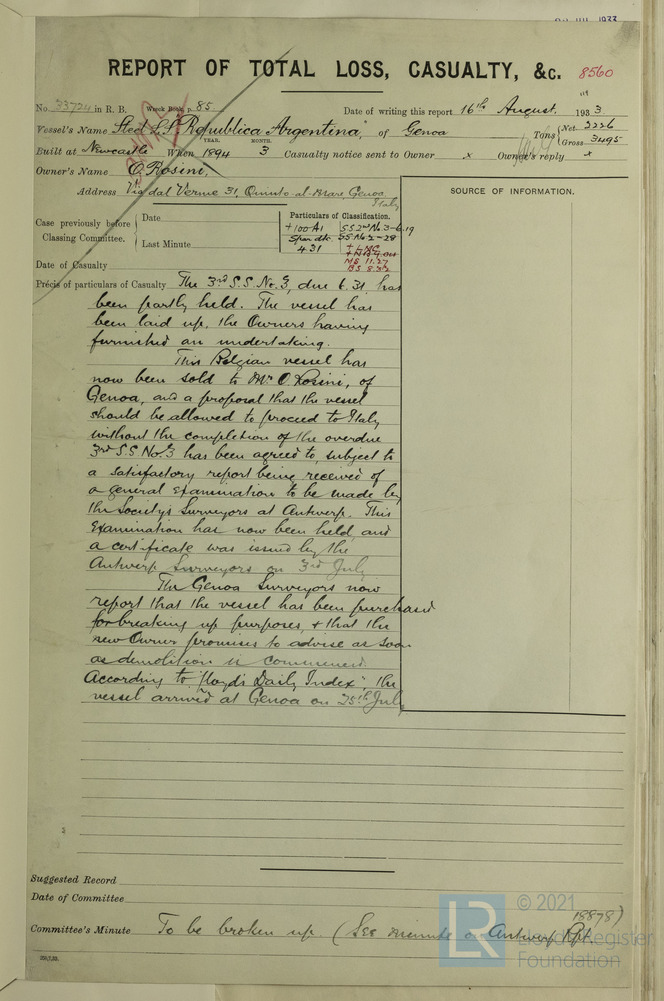 REPORT OF TOTAL LOSS, CASUALTY, &c. 8560
No. 33724 in R. B. Wreck Book, p. 85 Date of writing this report 16th August. 1933
Vessel's Name Steel S.S. "Republica Argentina," of Genoa Tons Net 2226 Gross 3495
YEAR. MONTH.
Built at Newcastle When 1894 3 Casualty notice sent to Owner x Owner's reply x
Owner's Name O. Rosini,
Address Via dal Verme 31, Quinto-al-Mare, Genoa, Italy
SOURCE OF INFORMATION.
Case previously before Classing Committee.
Date
Last Minute
Particulars of Classification.
+100A1 SS 2nd No 3-6.19
Spar dk. SS No 2-28
4.31
+LMC
MS 11.27
BS 8.32
Date of Casualty
Précis of particulars of Casualty The 3rd S.S. No. 3, due 6.31, has
been partly held. The vessel has
been laid up, the Owners having
furnished an undertaking.
This Belgian vessel has
now been sold to Mr. O. Rosini, of
Genoa, and a proposal that the vessel
should be allowed to proceed to Italy
without the completion of the overdue
3rd S.S. No. 3 has been agreed to, subject to
a satisfactory report being received of
a general examination to be made by
the Society's Surveyors at Antwerp. This
Examination has now been held and
a certificate was issued by the
Antwerp Surveyors on 3rd July
The Genoa Surveyors now
report that the vessel has been purchased
for breaking up purposes, & that the
new Owner promises to advise as soon
as demolition is commenced.
According to "Lloyd's Daily Index", the
vessel arrived at Genoa on 25th July
Suggested Record
Date of Committee
Committee's Minute To be broken up. (See minute on Antwerp Rpt. 18878)
LR
© 2021
Lloyd's Register
Foundation